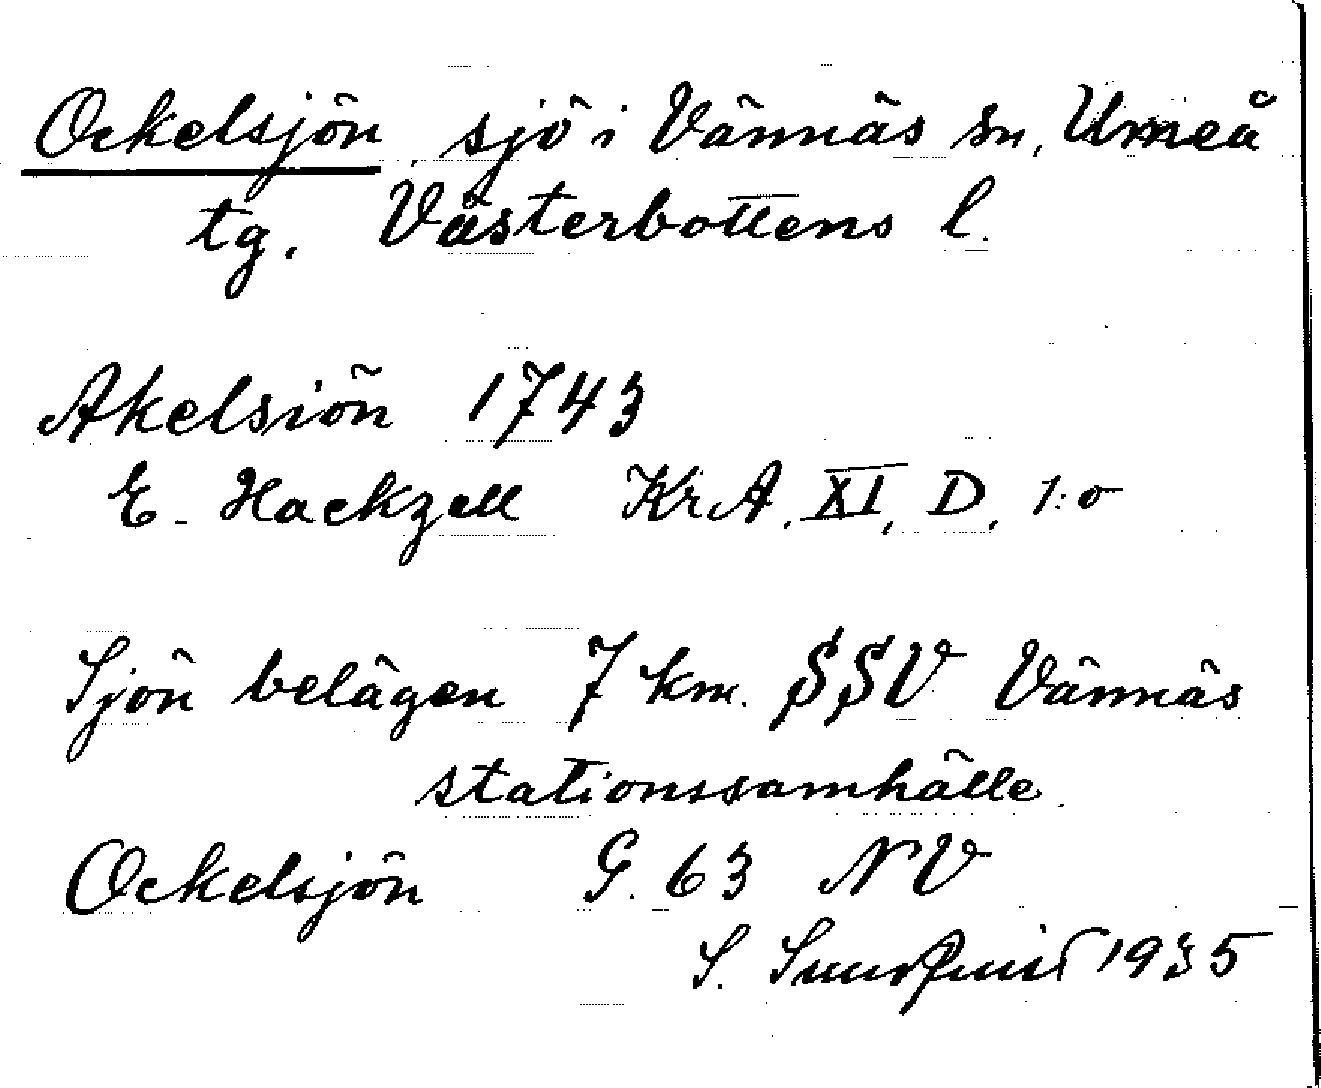 Ockelsjön, sjö i Vännäs sn, Umeå
tg. Västerbottens l.
Akelsiön 1743
E. Hackzell KrA, XI, D, 1:o
Sjön belägen 7 km. SSV Vännäs
stationssamhälle.
Ockelsjön G. 63 NV
S. 1935